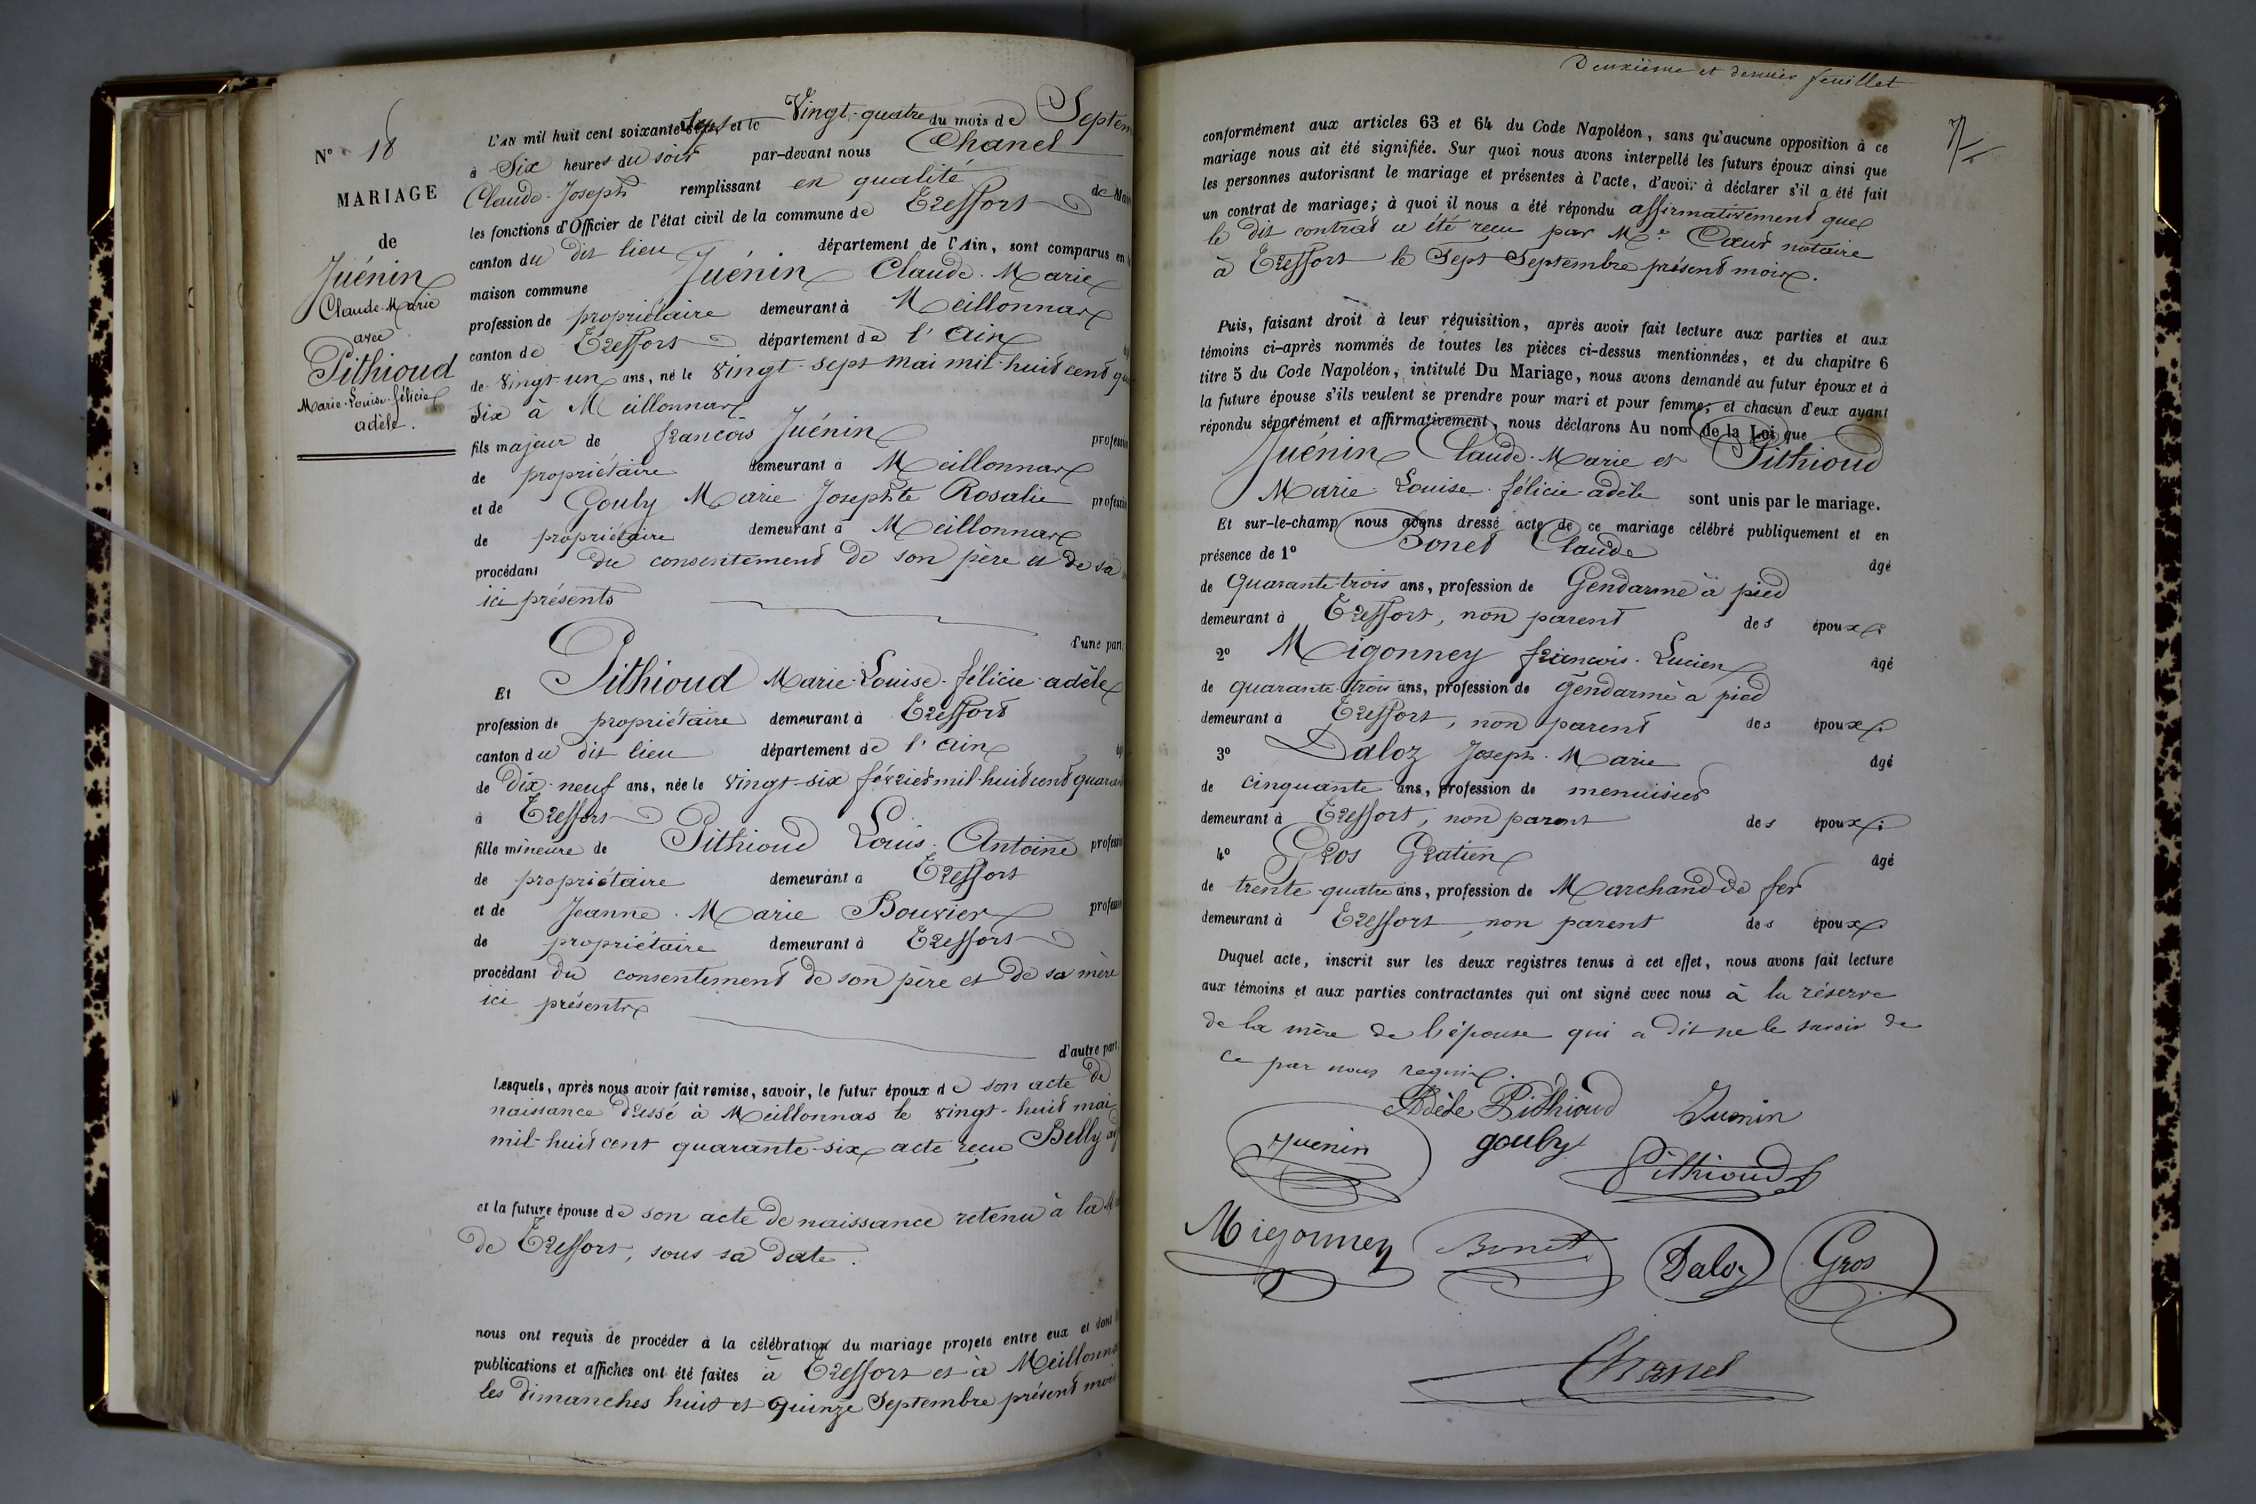 N° 18
MARIAGE
de
Juénin
Claude-Marie
avec
Pithioud
Marie-Louise-félicie
adèle.
L'AN mil huit cent soixante Sept et le Vingt-quatre du mois de Septem
à Six heures du soir par-devant nous Chanel
Claude-Joseph remplissant en qualité de Mai
les fonctions d'Officier de l'état civil de la commune de Treffort
canton du dit lieu département de l'Ain, sont comparus en
maison commune Juénin Claude-Marie
profession de propriétaire demeurant à Meillonnas
canton de Treffort département de l'Ain
de Vingt-un ans, né le Vingt-sept mai mil-huit cent
Six à Meillonnas
fils majeur de françois Juénin profession
de propriétaire demeurant à Meillonnas
et de Gouly Marie Josephte Rosalie profession
de propriétaire demeurant à Meillonnas
procédant du consentement de son père et de sa
ici présents
d'une part,
Et Pithioud Marie-Louise-félicie-adèle
profession de propriétaire demeurant à Treffort
canton du dit lieu département de l'Ain
de Dix-neuf ans, née le Vingt-six février mil-huit cent quaran
à Treffort
fille mineure de Pithioud Louis-Antoine professio
de propriétaire demeurant à Treffort
et de Jeanne-Marie Bouvier profession
de propriétaire demeurant à Treffort
procédant du consentement de son père et de sa mère
ici présents
d'autre part,
Lesquels, après nous avoir fait remise, savoir, le futur époux de son acte de
naissance dressé à Meillonnas le vingt-huit mai
mil-huit cent quarante-six acte reçu Belly
et la future épouse de son acte de naissance retenu à la
de Treffort, sous sa date.
nous ont requis de procéder à la célébration du mariage projeté entre eux et dont
publications et affiches ont été faites à Treffort et à Meillonna
les dimanches huit et quinze Septembre présent mois
Deuxième et dernier feuillet
conformément aux articles 63 et 64 du Code Napoléon, sans qu'aucune opposition à ce
mariage nous ait été signifiée. Sur quoi nous avons interpellé les futurs époux ainsi que
les personnes autorisant le mariage et présentes à l'acte, d'avoir à déclarer s'il a été fait
un contrat de mariage; à quoi il nous a été répondu affirmativement que
le dit contrat a été reçu par Me Cœur notaire
à Treffort le Sept Septembre présent mois.
Puis, faisant droit à leur réquisition, après avoir fait lecture aux parties et aux
témoins ci-après nommés de toutes les pièces ci-dessus mentionnées, et du chapitre 6
titre 5 du Code Napoléon, intitulé Du Mariage, nous avons demandé au futur époux et à
la future épouse s'ils veulent se prendre pour mari et pour femme; et chacun d'eux ayant
répondu séparément et affirmativement, nous déclarons Au nom de la Loi que
Juénin Claude-Marie et Pithioud
Marie-Louise-félicie-adèle sont unis par le mariage.
Et sur-le-champ nous avons dressé acte de ce mariage célébré publiquement et en
présence de 1° Bonet Claude âgé
de Quarante-trois ans, profession de Gendarme à pied
demeurant à Treffort, non parent des époux;
2° Migonney françois-Lucien âgé
de quarante-trois ans, profession de gendarme à pied
demeurant à Treffort, non parent des époux;
3° Daloz Joseph-Marie âgé
de cinquante ans, profession de menuisier
demeurant à Treffort, non parent des époux;
4° Gros Gratien âgé
de trente-quatre ans, profession de Marchand de fer
demeurant à Treffort, non parent des époux
Duquel acte, inscrit sur les deux registres tenus à cet effet, nous avons fait lecture
aux témoins et aux parties contractantes qui ont signé avec nous à la réserve
de la mère de l'épouse qui a dit ne le savoir de
ce par nous requis.
Adèle Pithioud Junin
Juenin gouly Pithioud
Migonney Bonet Daloz Gros
Chanel